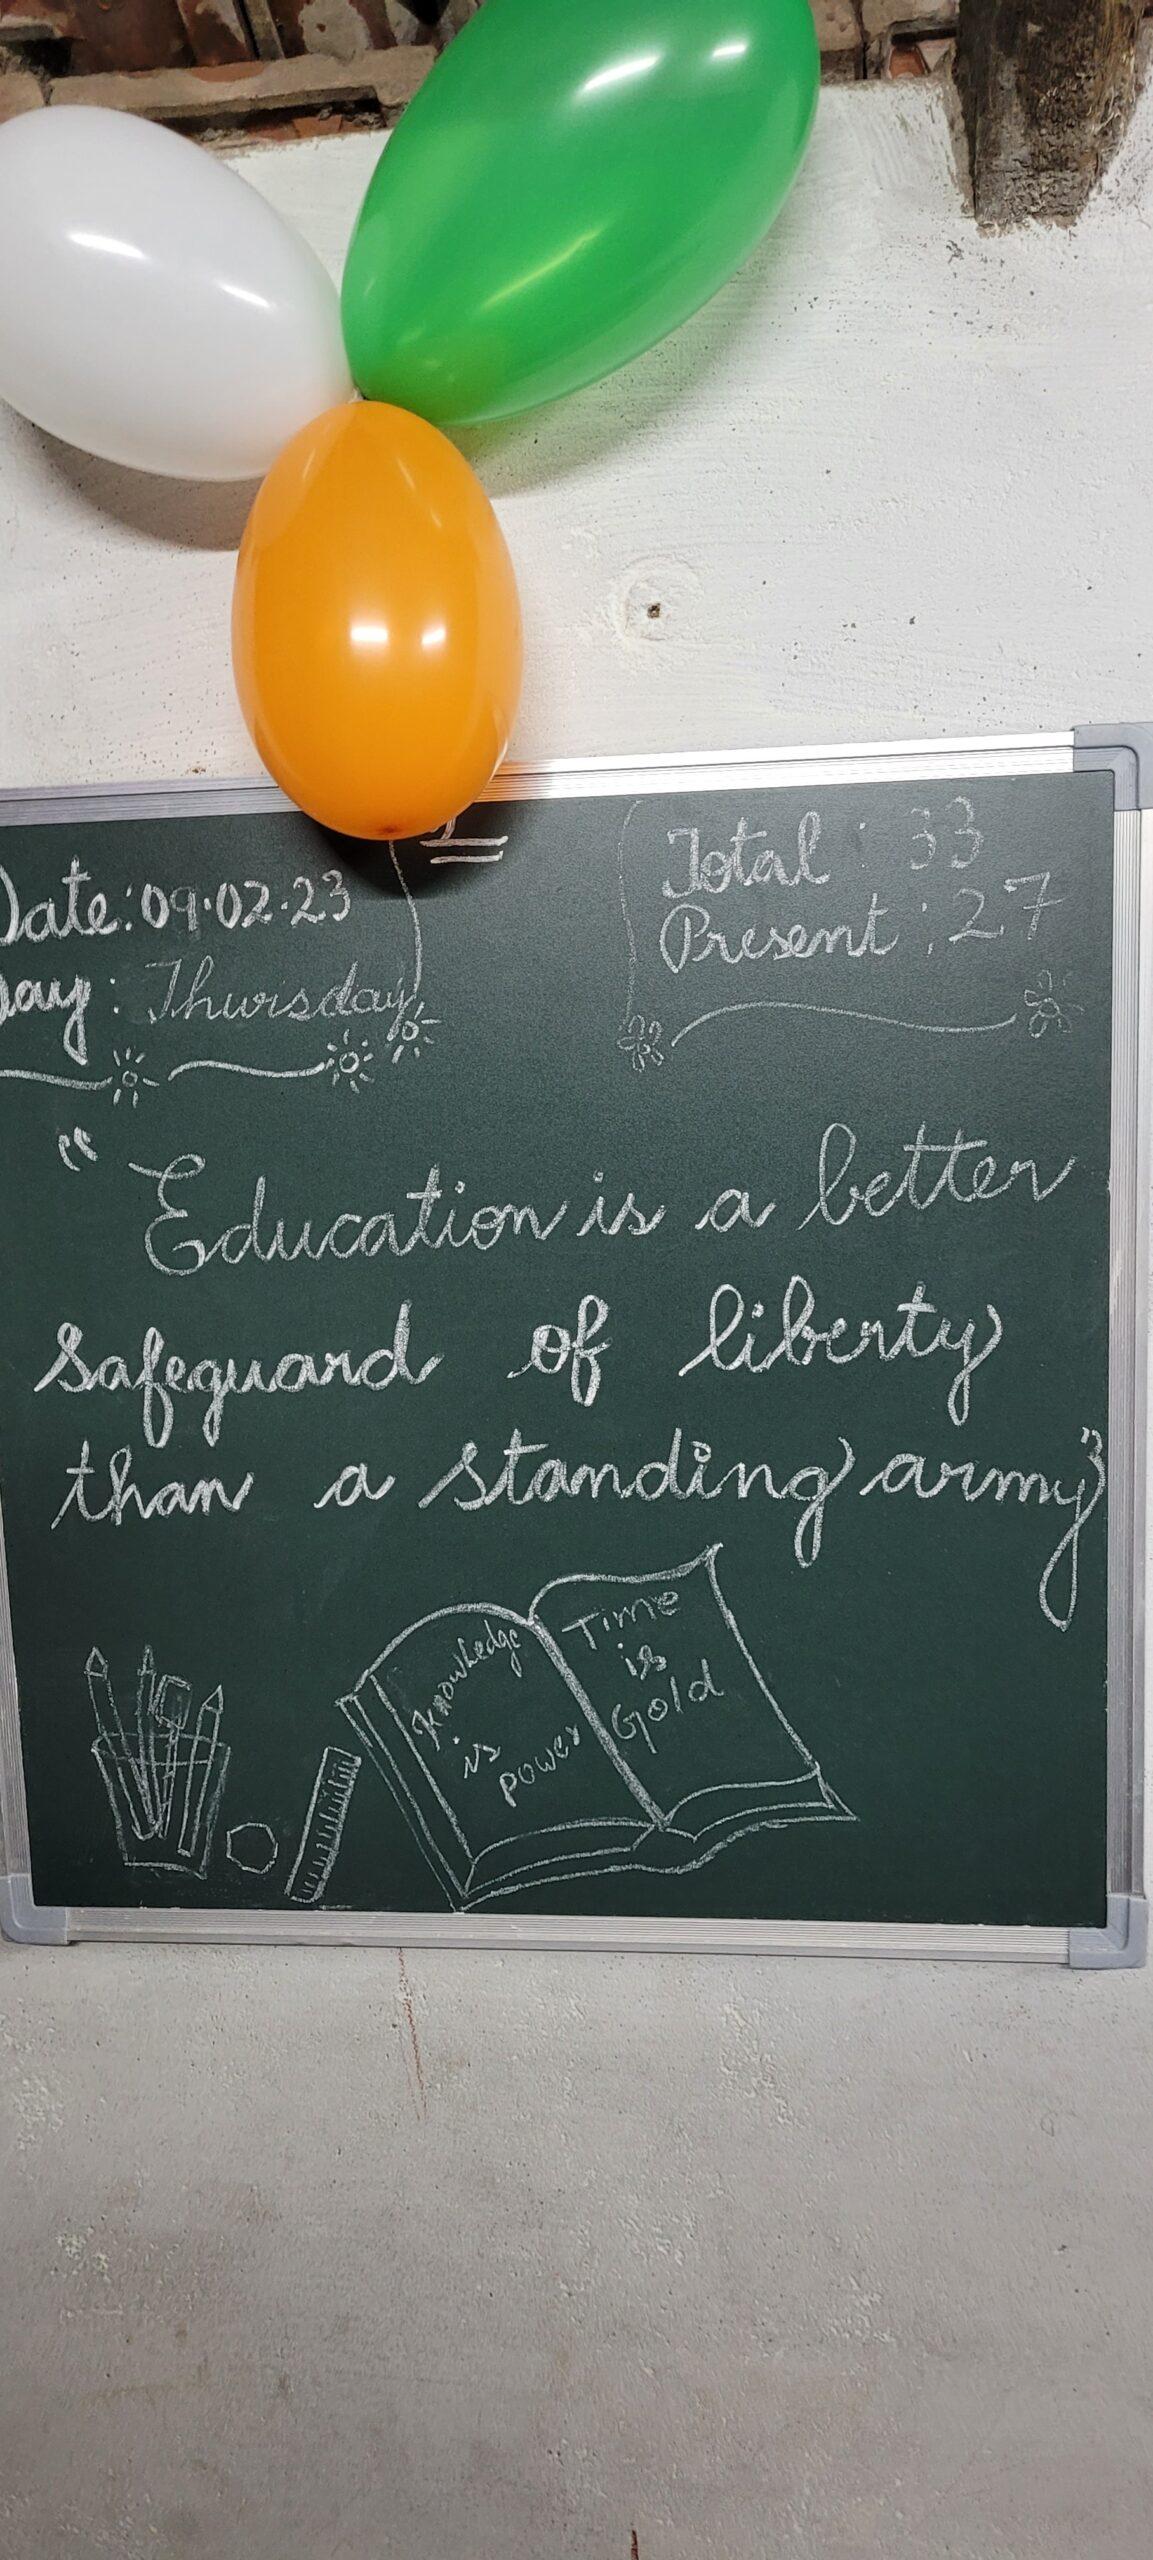 Date: 09.02.23
Day: Thursday
Total : 33
Present : 27
"Education is a better
safeguard of liberty
than a standing army"
Knowledge
is
power
Time
is
Gold